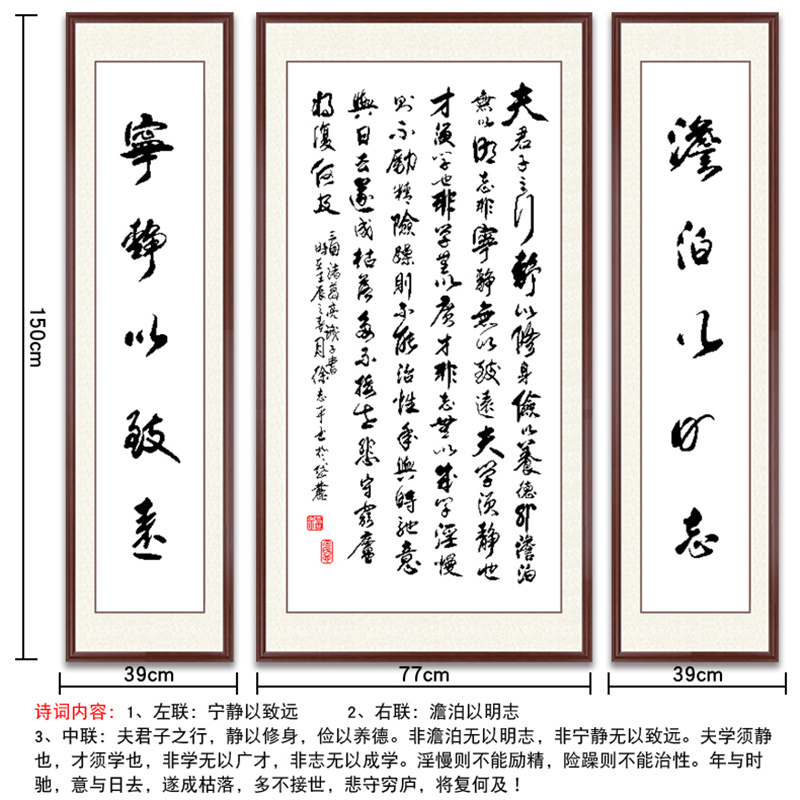 澹泊以明志
夫君子之行靜以脩身儉以養德非澹泊
無以明志非寧靜無以致遠夫学須靜也
才須学也非学無以廣才非志無以成学淫慢
則不勵精險躁則不能治性年與時馳意
與日去遂成枯落多不接世悲守窮廬
將復何及
三国諸葛亮誡子書
時在壬辰之春月徐志平书於岱麓
寧靜以致遠
150cm
39cm
77cm
39cm
诗词内容：1、左联：宁静以致远 2、右联：澹泊以明志
3、中联：夫君子之行，静以修身，俭以养德。非澹泊无以明志，非宁静无以致远。夫学须静
也，才须学也，非学无以广才，非志无以成学。淫慢则不能励精，险躁则不能治性。年与时
驰，意与日去，遂成枯落，多不接世，悲守穷庐，将复何及！